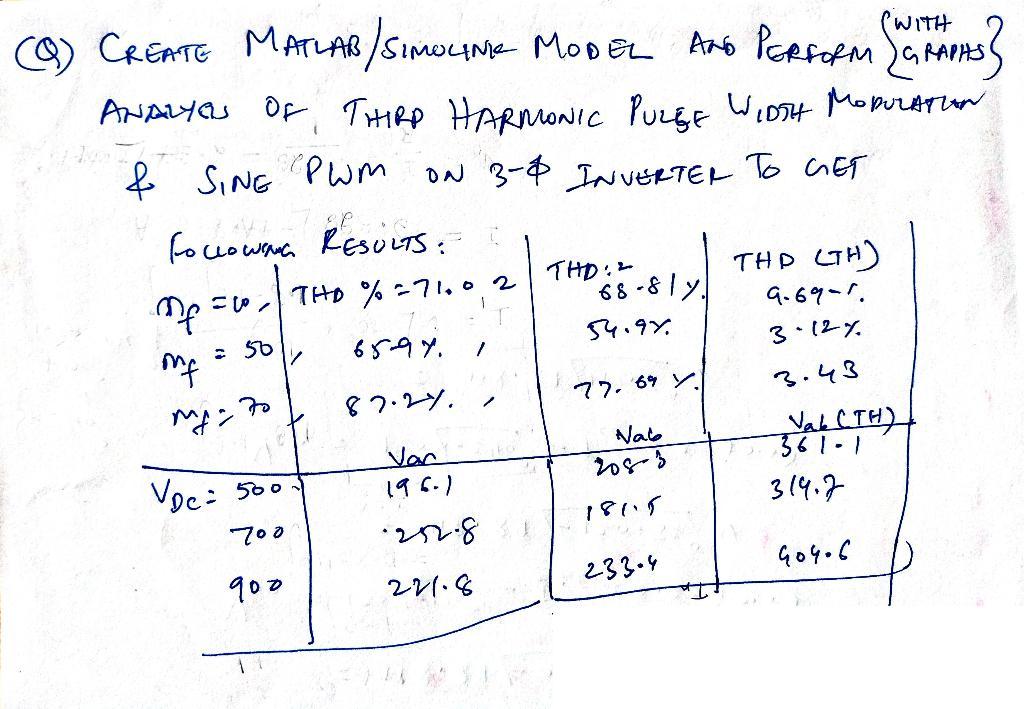 (Q) CREATE MATLAB/SIMULINK MODEL AND PERFORM {WITH GRAPHS}
ANALYSIS OF THIRD HARMONIC PULSE WIDTH MODULATION
& SINE PWM ON 3-Φ INVERTER TO GET
FOLLOWING RESULTS:
mf = 10, THD % = 71.02 THD:2 68.81%. THD (TH) 9.69%.
mf = 50, 65.9%, 54.9%. 3.12%.
mf = 70, 87.2%., 77.69%. 3.43
Van Vab Vab (TH)
VDC = 500 196.1 208.3 361.1
700 252.8 181.5 314.7
900 221.8 233.4 404.6